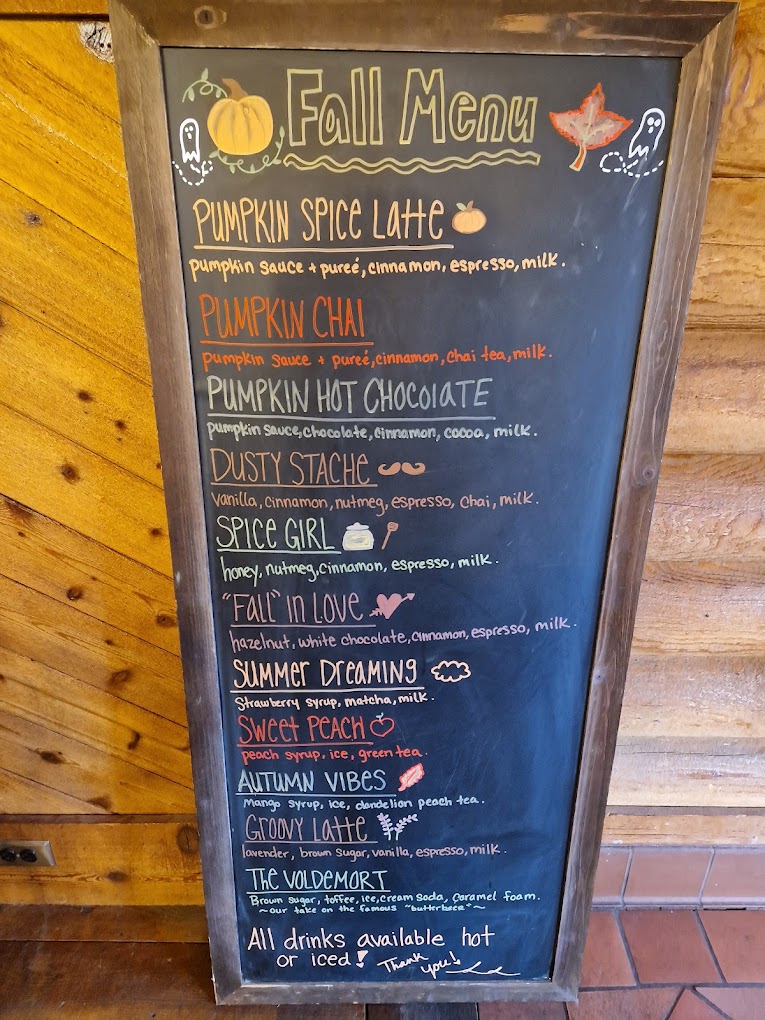 Fall Menu
PUMPKIN SPICE LATTE
pumpkin sauce + pureé, cinnamon, espresso, milk.
PUMPKIN CHAI
pumpkin sauce + pureé, cinnamon, chai tea, milk.
PUMPKIN HOT CHOCOLATE
pumpkin sauce, chocolate, cinnamon, cocoa, milk.
DUSTY STACHE
vanilla, cinnamon, nutmeg, espresso, chai, milk.
SPICE GIRL
honey, nutmeg, cinnamon, espresso, milk.
"FALL" IN LOVE
hazelnut, white chocolate, cinnamon, espresso, milk.
SUMMER DREAMING
Strawberry syrup, matcha, milk.
SWEET PEACH
peach syrup, ice, green tea.
AUTUMN VIBES
Mango syrup, ice, dandelion peach tea.
GROOVY LATTE
lavender, brown sugar, vanilla, espresso, milk.
THE VOLDEMORT
Brown sugar, toffee, ice, cream soda, caramel foam.
~our take on the famous "butterbeer"~
All drinks available hot
or iced! Thank you!